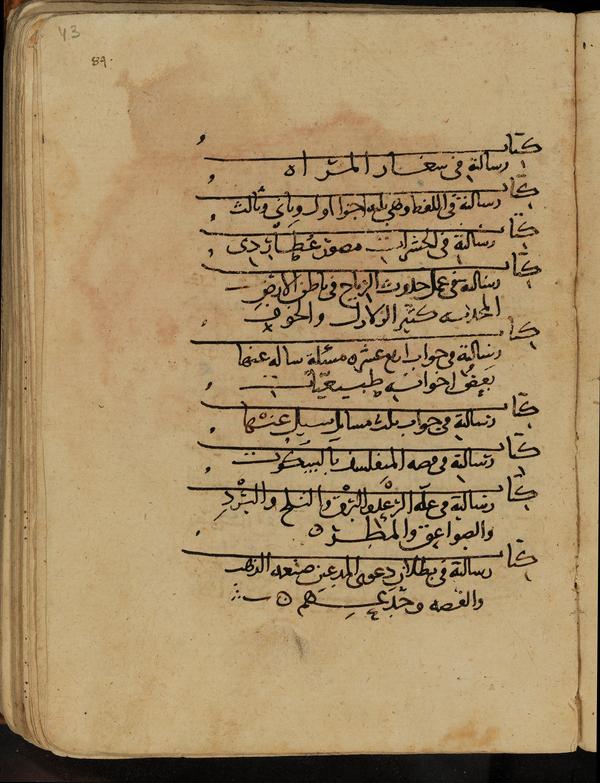 43
89
كتاب
رسالته في سعار المرآة
كتاب
رسالته في اللفظ وهي ثلثة اجزا اول وثاني وثالث
كتاب
رسالته في الحشرات مصور عطاردي
كتاب
رسالته في عمل حدوث الرياح في باطن الارض
المحدثه كثير الزلازل والخسوف
كتاب
رسالته في جواب اربع عشره مسئلة ساله عنها
بعض اخوانه طبيعيات
كتاب
رسالته في جواب ثلث مسايل سيل عنها
كتاب
رسالته في قصه المتفلسف بالسكوت
كتاب
رسالته في علة الرعد والبرق والثلج والبرد
والصواعق والمطر
كتاب
رسالته في بطلان دعوى المدعين صنعه الذهب
والفضه وخدعهم